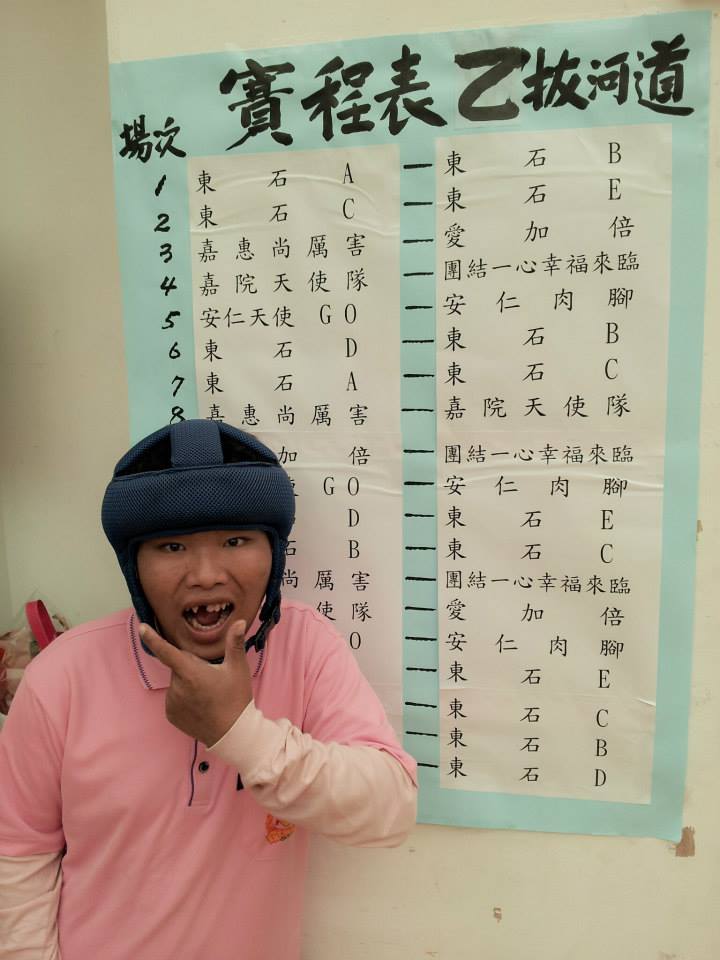 賽程表 乙拔河道
場次
1 東石A — 東石B
2 東石C — 東石E
3 嘉惠尚厲害 — 愛加倍
4 嘉院天使隊 — 團結一心幸福來臨
5 安仁天使GO — 安仁肉腳
6 東石D — 東石B
7 東石A — 東石C
8 嘉惠尚厲害 — 嘉院天使隊
加倍 — 團結一心幸福來臨
GO — 安仁肉腳
D — 東石E
石B — 東石C
尚厲害 — 團結一心幸福來臨
使隊 — 愛加倍
O — 安仁肉腳
— 東石E
— 東石C
— 東石B
— 東石D